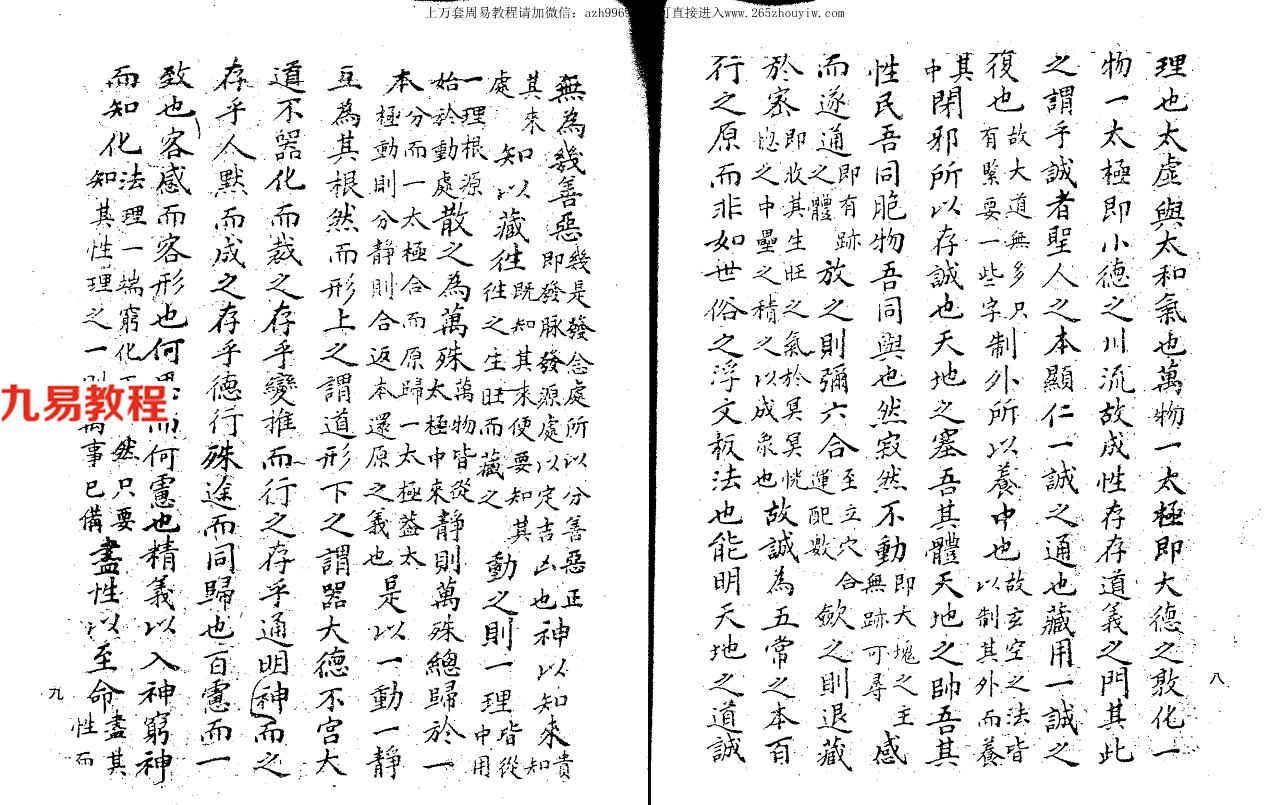 上万套周易教程请加微信：azh9969 可直接进入www.265zhouyiw.com
理也太虛與太和氣也萬物一太極即大德之敦化一
物一太極即小德之川流故成性存存道義之門其此
之謂乎誠者聖人之本顯仁一誠之通也藏用一誠之
復也故大道無多只有緊要一些字制外所以養中也故玄空之法皆以制其外而養
其中閉邪所以存誠也天地之塞吾其體天地之帥吾其
性民吾同胞物吾同與也然寂然不動即大塊之主無跡可尋感
而遂通即有跡之體放之則彌六合至立穴運配數合歛之則退藏
於密即收其生旺之氣於冥冥恍惚之中壘之積之以成象也故誠為五常之本百
行之原而非如世俗之浮文板法也能明天地之道誠
八
無為幾善惡幾是發念處所以分善惡正即發脉發源處以定吉凶也神以知來貴
其來處知以藏往既知其來便要知其往之生旺而藏之動之則一理皆從知中用
一理根源始於動處散之為萬殊萬物皆從太極中來靜則萬殊總歸於一
本分而一太極合而原歸一太極蓋太極動則分靜則合返本還原之義也是以一動一靜
互為其根然而形上之謂道形下之謂器大德不官大
道不器化而裁之存乎變推而行之存乎通明神而之
存乎人默而成之存乎德行殊途而同歸也百慮而一
致也客感而客形也何思而何慮也精義以入神窮神
而知化法理一端窮化 然只要知其性理之一則萬事已備盡性以至命盡其性而
九
九易教程